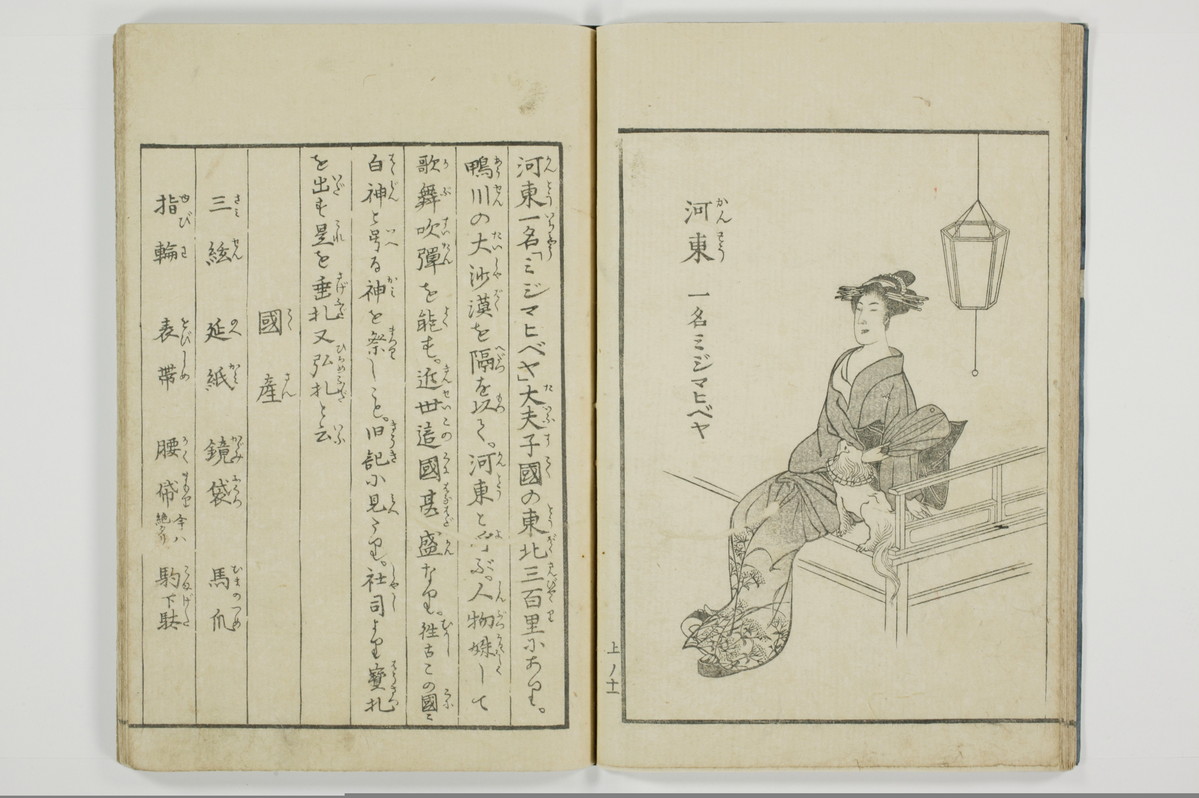 河東 一名ミジマヒベヤ
かんとう
上ノ十一
河東一名「ミジマヒベヤ」大夫子國の東北三百里にあり。
鴨川の大沙漠を隔を以て。河東とよぶ。人物姝して
歌舞吹彈を能す。近世這國甚盛なり。徃古この國に
白神と号る神を祭しこと。旧記に見えたり。社司より寳札
を出す是を垂札又弘札と云
國産
三絃 延紙 鏡袋 馬爪
指輪 表帯 腰帒 今ハ絶タリ 駒下駄